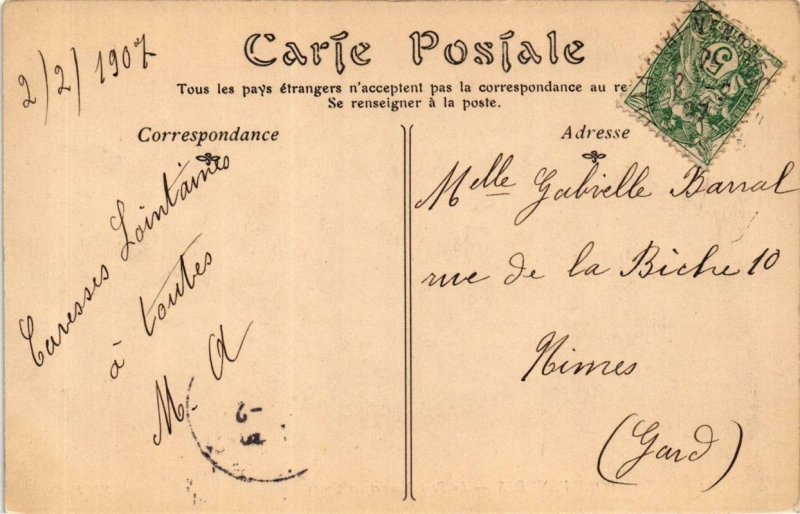 2/2/1907
Carte Postale
Tous les pays étrangers n'acceptent pas la correspondance au
Se renseigner à la poste.
Correspondance
Caresses Lointaines
à toutes
M. A
Adresse
Melle Gabrielle Barral
rue de la Biche 10
Nimes
(Gard)